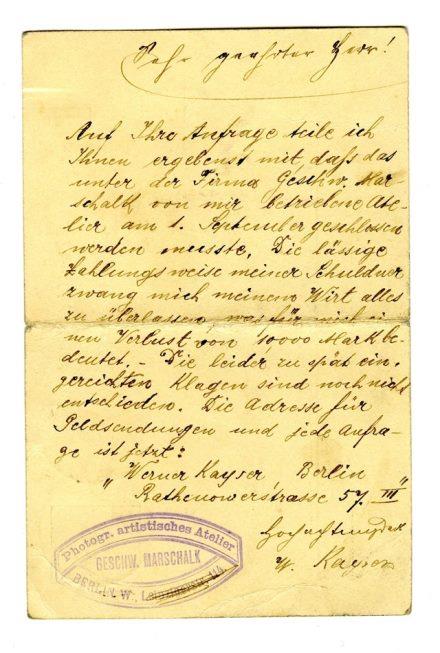 Sehr geehrter Herr!
Auf Ihre Anfrage teile ich
Ihnen ergebenst mit, daß das
unter der Firma Geschw. Mar-
schalk von mir betriebene Ate-
lier am 1. September geschlossen
werden musste. Die lässige
Zahlungsweise meiner Schuldner
zwang mich meinem Wirt alles
zu überlassen was für mich ei-
nen Verlust von 10000 Mark be-
deutet. - Die leider zu spät ein-
gereichten Klagen sind noch nicht
entschieden. Die Adresse für
Geldsendungen und jede Anfra-
ge ist jetzt:
"Werner Kayser Berlin
Rathenowerstrasse 57. III"
Hochachtungsvoll
W. Kayser
Photogr. artistisches Atelier
GESCHW. MARSCHALK
BERLIN W., Leipzigerstr. 114.